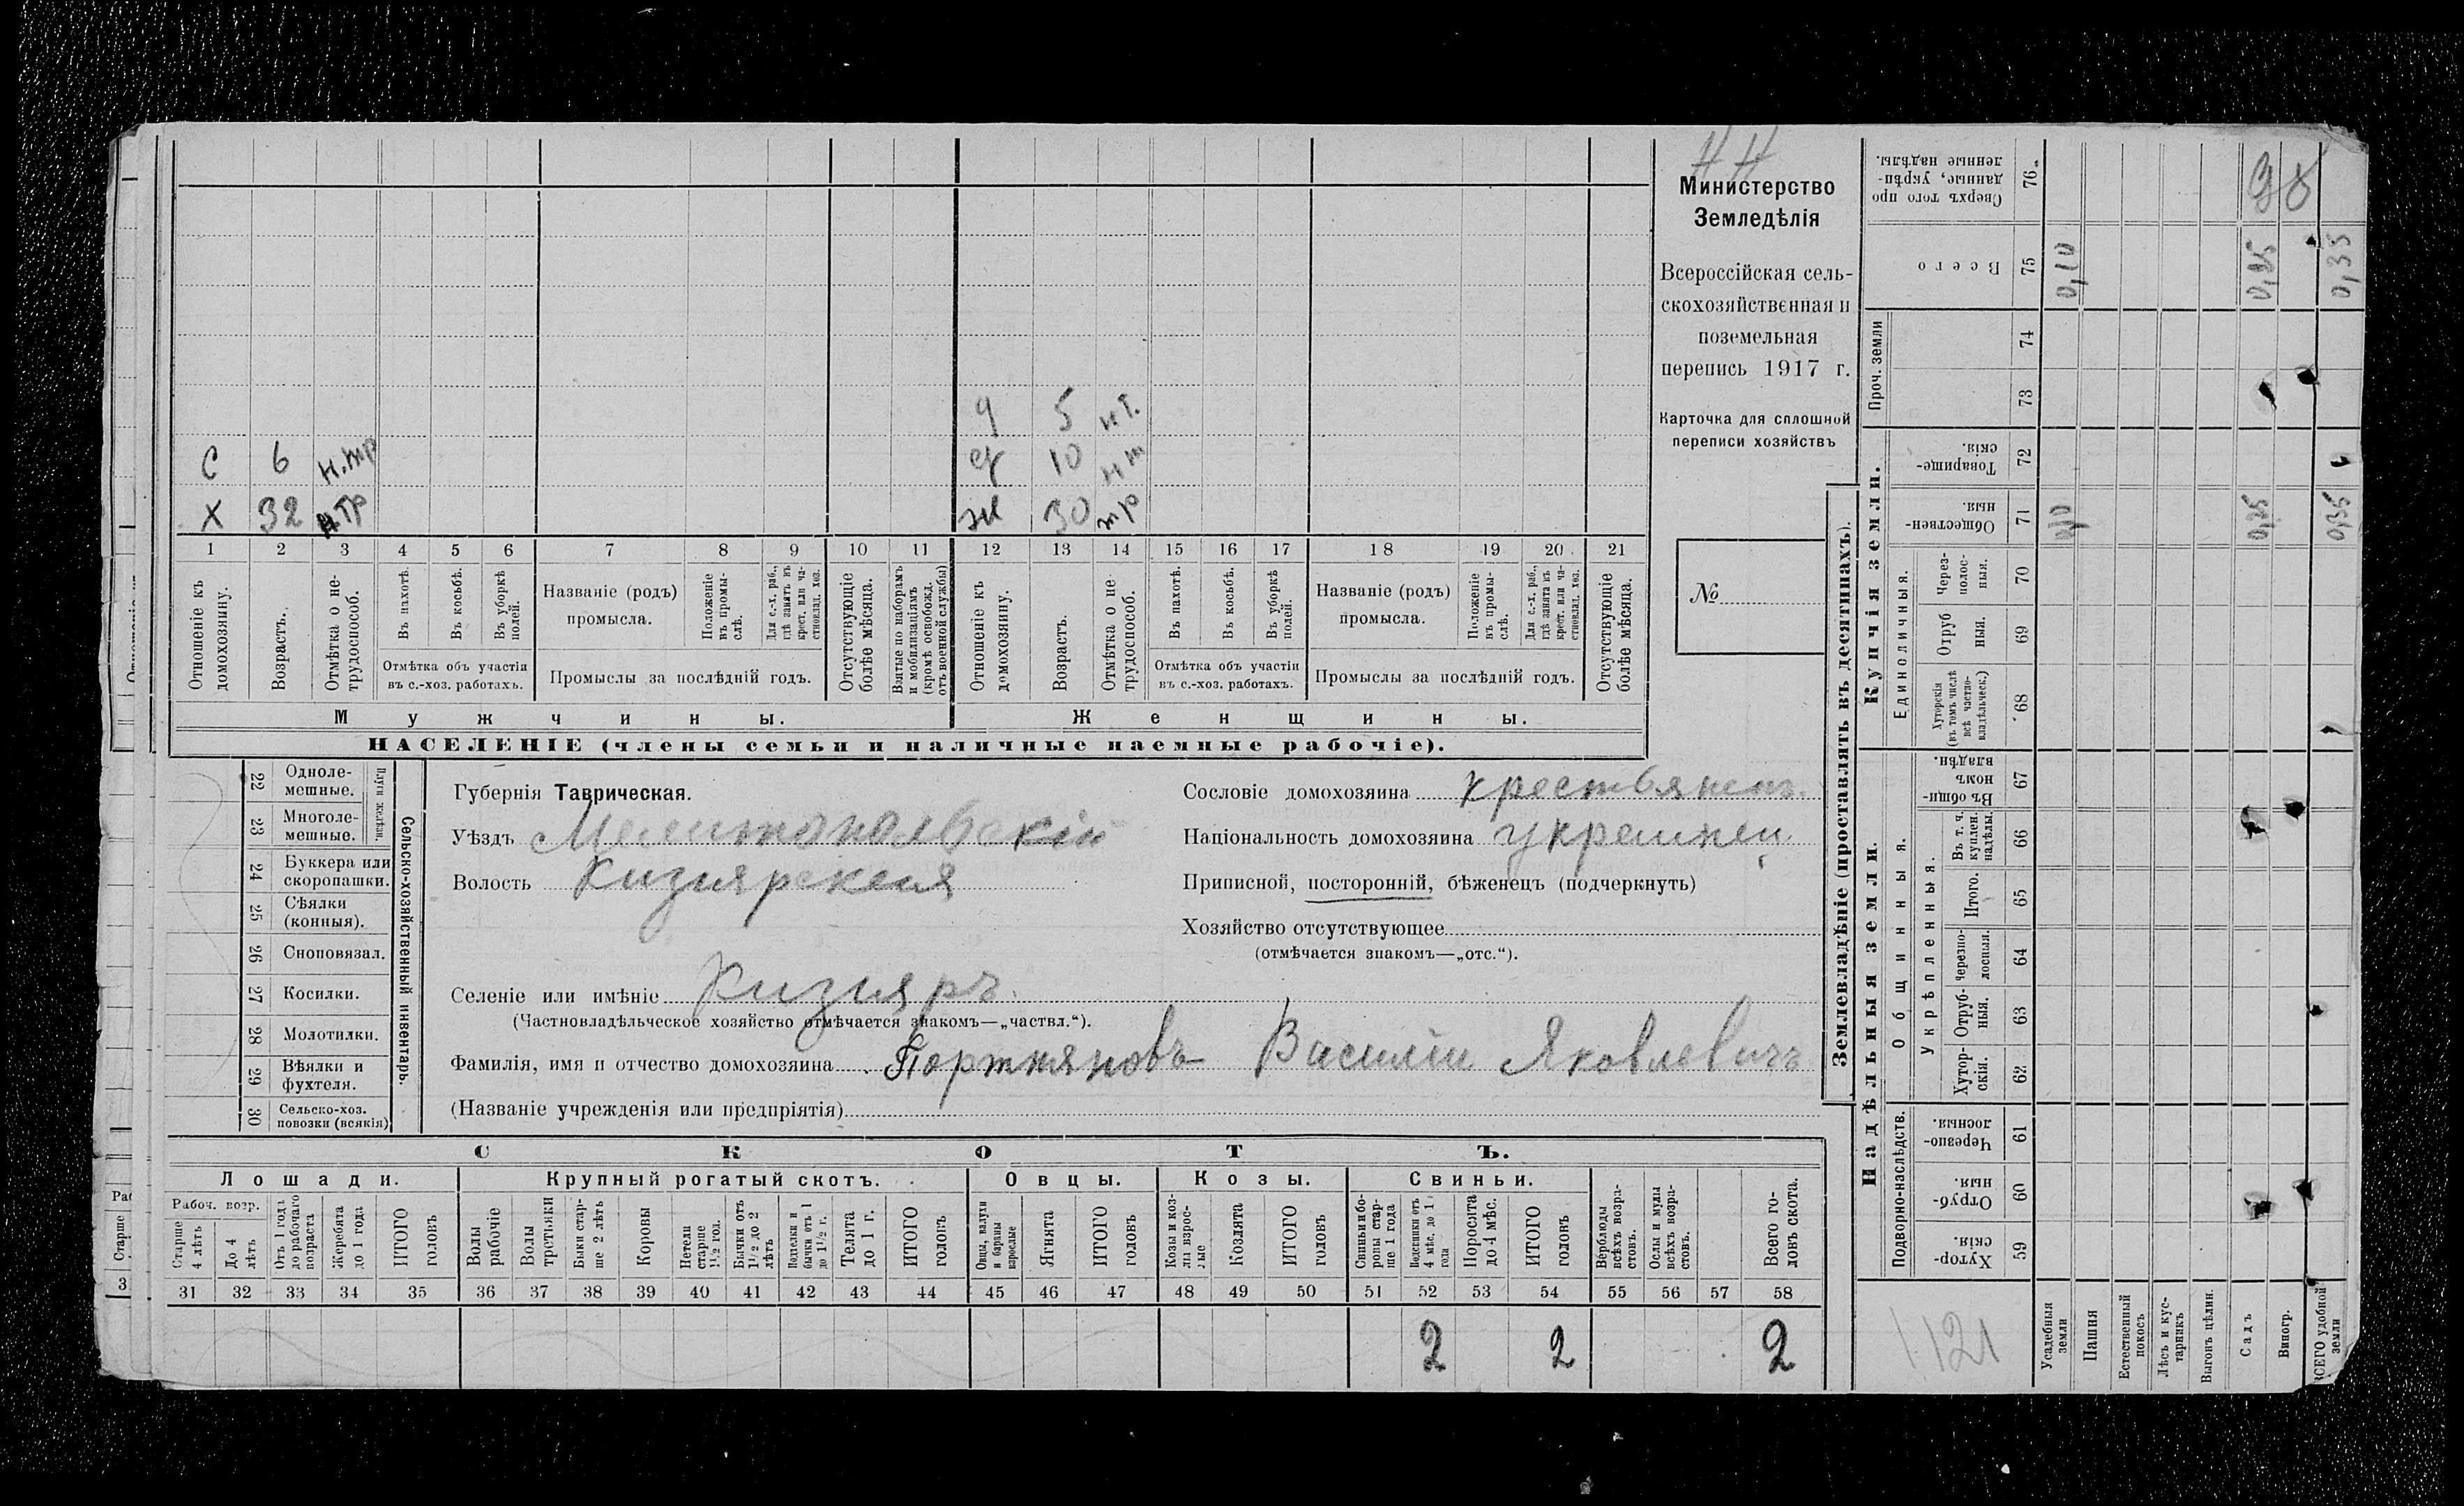 НН
Министерство
Земледѣлія
Всероссійская сель-
скохозяйственная и
поземельная
перепись 1917 г.
Карточка для сплошной
переписи хозяйствъ
№
д 5 н т.
с 6 н.тр д 10 н т
х 32 н тр ж 30 тр
1 2 3 4 5 6 7 8 9 10 11 12 13 14 15 16 17 18 19 20 21
Отношеніе къ домохозяину.
Возрастъ.
Отмѣтка о не-трудоспособ.
Въ пахотѣ.
Въ косьбѣ.
Въ уборкѣ полей.
Отмѣтка объ участіи
въ с.-хоз. работахъ.
Названіе (родъ)
промысла.
Положеніе въ промы-слѣ.
Для с.-х. раб., гдѣ занятъ въ крест. или ча-стновлад. хоз.
Промыслы за послѣдній годъ.
Отсутствующіе болѣе мѣсяца.
Взятые по наборамъ и мобилизаціямъ (кромѣ освобожд. отъ военной службы)
Отношеніе къ домохозяину.
Возрастъ.
Отмѣтка о не трудоспособ.
Въ пахотѣ.
Въ косьбѣ.
Въ уборкѣ полей.
Отмѣтка объ участіи
въ с.-хоз. работахъ.
Названіе (родъ)
промысла.
Положеніе въ промы-слѣ.
Для с.-х. раб., гдѣ занята въ крест. или ча-стновлад. хоз.
Промыслы за послѣдній годъ.
Отсутствующіе болѣе мѣсяца.
Мужчины.
Женщины.
НАСЕЛЕНІЕ (члены семьи и наличные наемные рабочіе).
22 Одноле-
мешные.
23 Многоле-
мешные.
Плуги желѣзн.
24 Буккера или
скоропашки.
25 Сѣялки
(конныя).
26 Сноповязал.
27 Косилки.
28 Молотилки.
29 Вѣялки и
фухтеля.
30 Сельско-хоз.
повозки (всякія)
Сельско-хозяйственный инвентарь.
Губернія Таврическая.
Уѣздъ Мелитопольскій
Волость Кизиярская
Сословіе домохозяина крестьянинъ
Національность домохозяина украинец
Приписной, посторонній, бѣженецъ (подчеркнуть)
Хозяйство отсутствующее
(отмѣчается знакомъ—„отс.“).
Селеніе или имѣніе Кизияръ
(Частновладѣльческое хозяйство отмѣчается знакомъ—„частвл.“).
Фамилія, имя и отчество домохозяина Портняновъ Василій Яковлевичъ
(Названіе учрежденія или предпріятія)
СКОТЪ.
Лошади.
Крупный рогатый скотъ.
Овцы.
Козы.
Свиньи.
Рабоч. возр.
Старше 4 лѣтъ
До 4 лѣтъ
Отъ 1 года до рабочаго возраста
Жеребята до 1 года
ИТОГО головъ
Волы рабочіе
Волы третьяки
Быки стар-ше 2 лѣтъ
Коровы
Нетели старше 1½ год.
Бычки отъ 1½ до 2 лѣтъ
Подтелки и бычки отъ 1 до 1½ г.
Телята до 1 г.
ИТОГО головъ
Овцы, валухи и бараны взрослые
Ягнята
ИТОГО головъ
Козы и коз-лы взрос-лые
Козлята
ИТОГО головъ
Свиньи и бо-ровы стар-ше 1 года
Подсвинки отъ 4 мѣс. до 1 года
Поросята до 4 мѣс.
ИТОГО головъ
Верблюды всѣхъ возра-стовъ.
Ослы и мулы всѣхъ возра-стовъ.
Всего го-ловъ скота.
31 32 33 34 35 36 37 38 39 40 41 42 43 44 45 46 47 48 49 50 51 52 53 54 55 56 57 58
2 2 2
Землевладѣніе (проставлять въ десятинахъ).
Сверхъ того про данные, укрѣп-ленные надѣлы. 76
Всего 75 0,10 0,25 0,35
Проч. земли
74
73
Купчія земли.
Товарище-скія. 72
Обществен-ныя. 71 0,10 0,25 0,35
Единоличныя.
Через-полос-ныя. 70
Отруб ныя. 69
Хуторскія (въ томъ числѣ всѣ частно-владѣльческ.) 68
Надѣльныя земли.
Общинныя.
Въ общи-номъ владѣн. 67
Укрѣпленныя.
Въ т. ч. куплен. надѣлы. 66
Итого. 65
Черезпо-лосныя. 64
Отруб-ныя. 63
Хутор-скія. 62
Подворно-наслѣдств.
Черезпо-лосныя. 61
Отруб-ныя. 60
Хутор-скія. 59
1121
Усадебныя земли
Пашня
Естественный покосъ
Лѣсъ и кус-тарникъ
Выгонъ цѣлин.
Садъ
Виногр.
ВСЕГО удобной земли
Старше
3